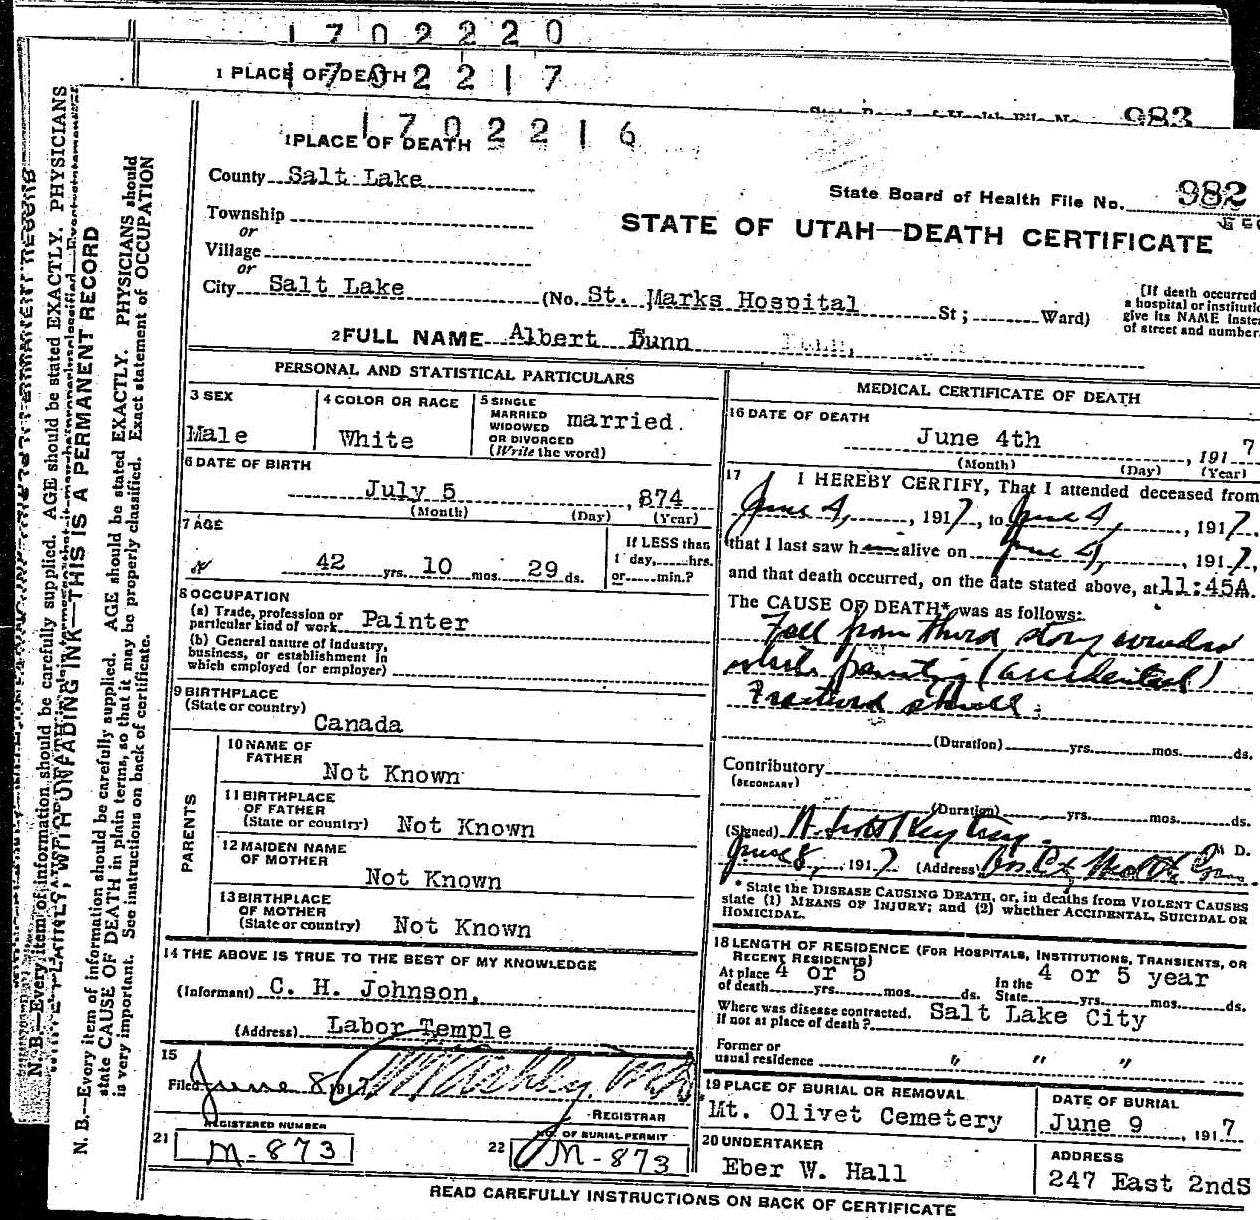 1702220
1 PLACE OF DEATH
1702217
983
1702216
1 PLACE OF DEATH
County Salt Lake
State Board of Health File No. 982
Township
or
STATE OF UTAH—DEATH CERTIFICATE
Village
or
City Salt Lake (No. St. Marks Hospital St; Ward)
(If death occurred
a hospital or institutio
give its NAME inste
of street and number.
2 FULL NAME Albert Dunn
PERSONAL AND STATISTICAL PARTICULARS
3 SEX
Male
4 COLOR OR RACE
White
5 SINGLE
MARRIED
WIDOWED
OR DIVORCED
(Write the word)
married.
6 DATE OF BIRTH
July 5, 874
(Month) (Day) (Year)
7 AGE
42 yrs. 10 mos. 29 ds.
If LESS than
1 day, hrs.
or min.?
8 OCCUPATION
(a) Trade, profession or
particular kind of work Painter
(b) General nature of industry,
business, or establishment in
which employed (or employer)
9 BIRTHPLACE
(State or country)
Canada
PARENTS
10 NAME OF
FATHER
Not Known
11 BIRTHPLACE
OF FATHER
(State or country) Not Known
12 MAIDEN NAME
OF MOTHER
Not Known
13 BIRTHPLACE
OF MOTHER
(State or country) Not Known
14 THE ABOVE IS TRUE TO THE BEST OF MY KNOWLEDGE
(Informant) C. H. Johnson,
(Address) Labor Temple
15
Filed June 8 1917
REGISTRAR
21 REGISTERED NUMBER
M-873
22 NO. OF BURIAL PERMIT
M-873
MEDICAL CERTIFICATE OF DEATH
16 DATE OF DEATH
June 4th, 191 7
(Month) (Day) (Year)
17 I HEREBY CERTIFY, That I attended deceased from
June 4, 1917, to June 4, 1917.
that I last saw h alive on June 4, 1917,
and that death occurred, on the date stated above, at 11:45A.
The CAUSE OF DEATH* was as follows:
Fall from third story window
while painting (accidental)
Fractured skull.
(Duration) yrs. mos. ds.
Contributory
(SECONDARY)
(Duration) yrs. mos. ds.
(Signed) M D.
June 8, 1917 (Address)
* State the DISEASE CAUSING DEATH, or, in deaths from VIOLENT CAUSES
state (1) MEANS OF INJURY; and (2) whether ACCIDENTAL, SUICIDAL OR
HOMICIDAL.
18 LENGTH OF RESIDENCE (FOR HOSPITALS, INSTITUTIONS, TRANSIENTS, OR
RECENT RESIDENTS)
At place 4 or 5
of death yrs. mos. ds.
in the 4 or 5 year
State yrs. mos. ds.
Where was disease contracted. Salt Lake City
if not at place of death?
Former or
usual residence " " "
19 PLACE OF BURIAL OR REMOVAL
Mt. Olivet Cemetery
DATE OF BURIAL
June 9, 191 7
20 UNDERTAKER
Eber W. Hall
ADDRESS
247 East 2ndS
READ CAREFULLY INSTRUCTIONS ON BACK OF CERTIFICATE
N. B.—Every item of information should be carefully supplied. AGE should be stated EXACTLY. PHYSICIANS should
state CAUSE OF DEATH in plain terms, so that it may be properly classified. Exact statement of OCCUPATION
is very important. See instructions on back of certificate.
N. B.—Every item of information should be carefully supplied. AGE should be stated EXACTLY. PHYSICIANS
WITH UNFADING INK—THIS IS A PERMANENT RECORD